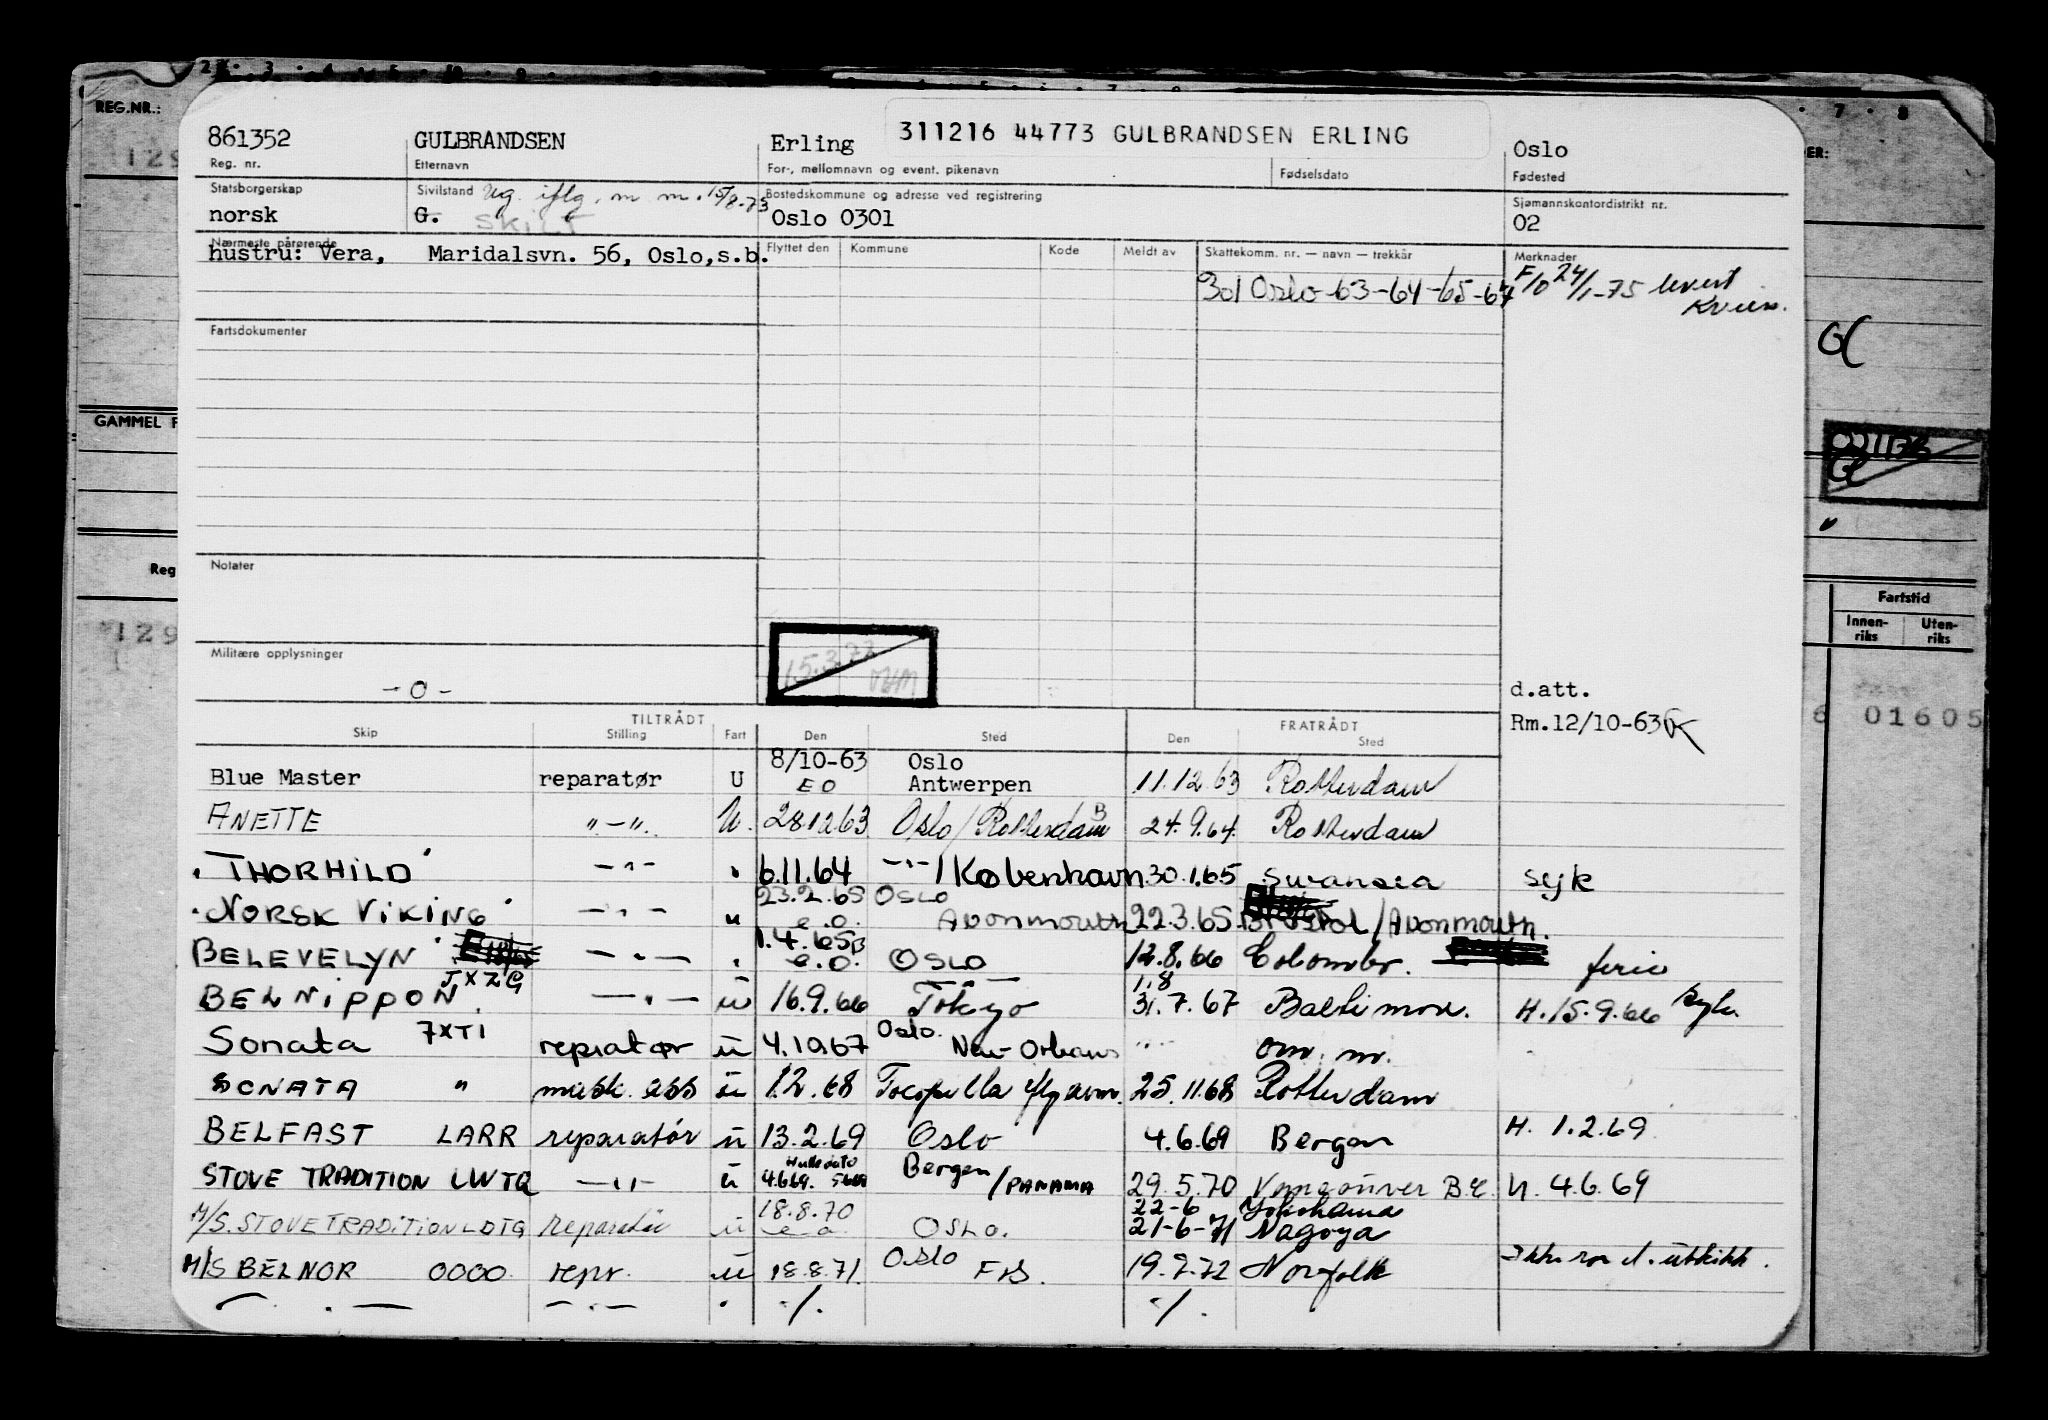 REG.NR.:
861352 GULBRANDSEN Erling 311216 44773 GULBRANDSEN ERLING Oslo
Reg. nr. Etternavn For-, mellomnavn og event. pikenavn Fødselsdato Fødested
Statsborgerskap Sivilstand Ug. iflg. m m. 15/8-73 Bostedskommune og adresse ved registrering Sjømannskontordistrikt nr.
norsk G. SKILT Oslo 0301 02
Nærmeste pårørende Flyttet den Kommune Kode Meldt av Skattekomm. nr. — navn — trekkår Merknader
hustru: Vera, Maridalsvn. 56, Oslo,s.b.
301 Oslo-63-64-65-67 F/O 24/1-75 levert
Fartsdokumenter
GAMMEL F
Notater
Reg
Fartstid
Innen-riks Uten-riks
129
Militære opplysninger
15.3.72
- 0 -
d.att.
01605
Rm.12/10-63
TILTRÅDT FRATRÅDT
Skip Stilling Fart Den Sted Den Sted
8/10-63 Oslo
Blue Master reparatør U EO Antwerpen 11.12.63 Rotterdam
ANETTE "-". U. 28.12.63 Oslo/Rotterdam B 24.9.64. Rotterdam
"THORHILD" -"- " 6.11.64 -"- /København 30.1.65 Swansea syk
"NORSK VIKING" -"- " 23.2.65 OSLO
e.o. Avonmouth 22.3.65 Bristol/Avonmouth.
BELEVELYN -"- " 1.4.65B
e.o. OSLO 12.8.66 Colombo. ferie
BELNIPPON JXZG -"- u 16.9.66 Tokyo 1.8
31.7.67 Baltimore. H.15.9.66
Sonata 7XTI repratør u 4.10.67 Oslo.
New Orleans "" om. m.
SONATA " mask. ass u 1.2.68 Tocopilla 25.11.68 Rotterdam
BELFAST LARR reparatør u 13.2.69 Oslo 4.6.69 Bergen H. 1.2.69
STOVE TRADITION LWTQ -"- u Hulledato
4.6.69. Bergen/PANAMA 29.5.70 Vancouver B.C. H. 4.6.69
M/S. STOVE TRADITION LDTQ reparatør u 18.8.70
e.o. OSLO. 22-6 Yokohama
21-6-71 Nagoya
M/S BELNOR OOOO repr. u 18.8.71. Oslo
FrS. 19.7.72 Norfolk
— " — — " — " ./. ./.